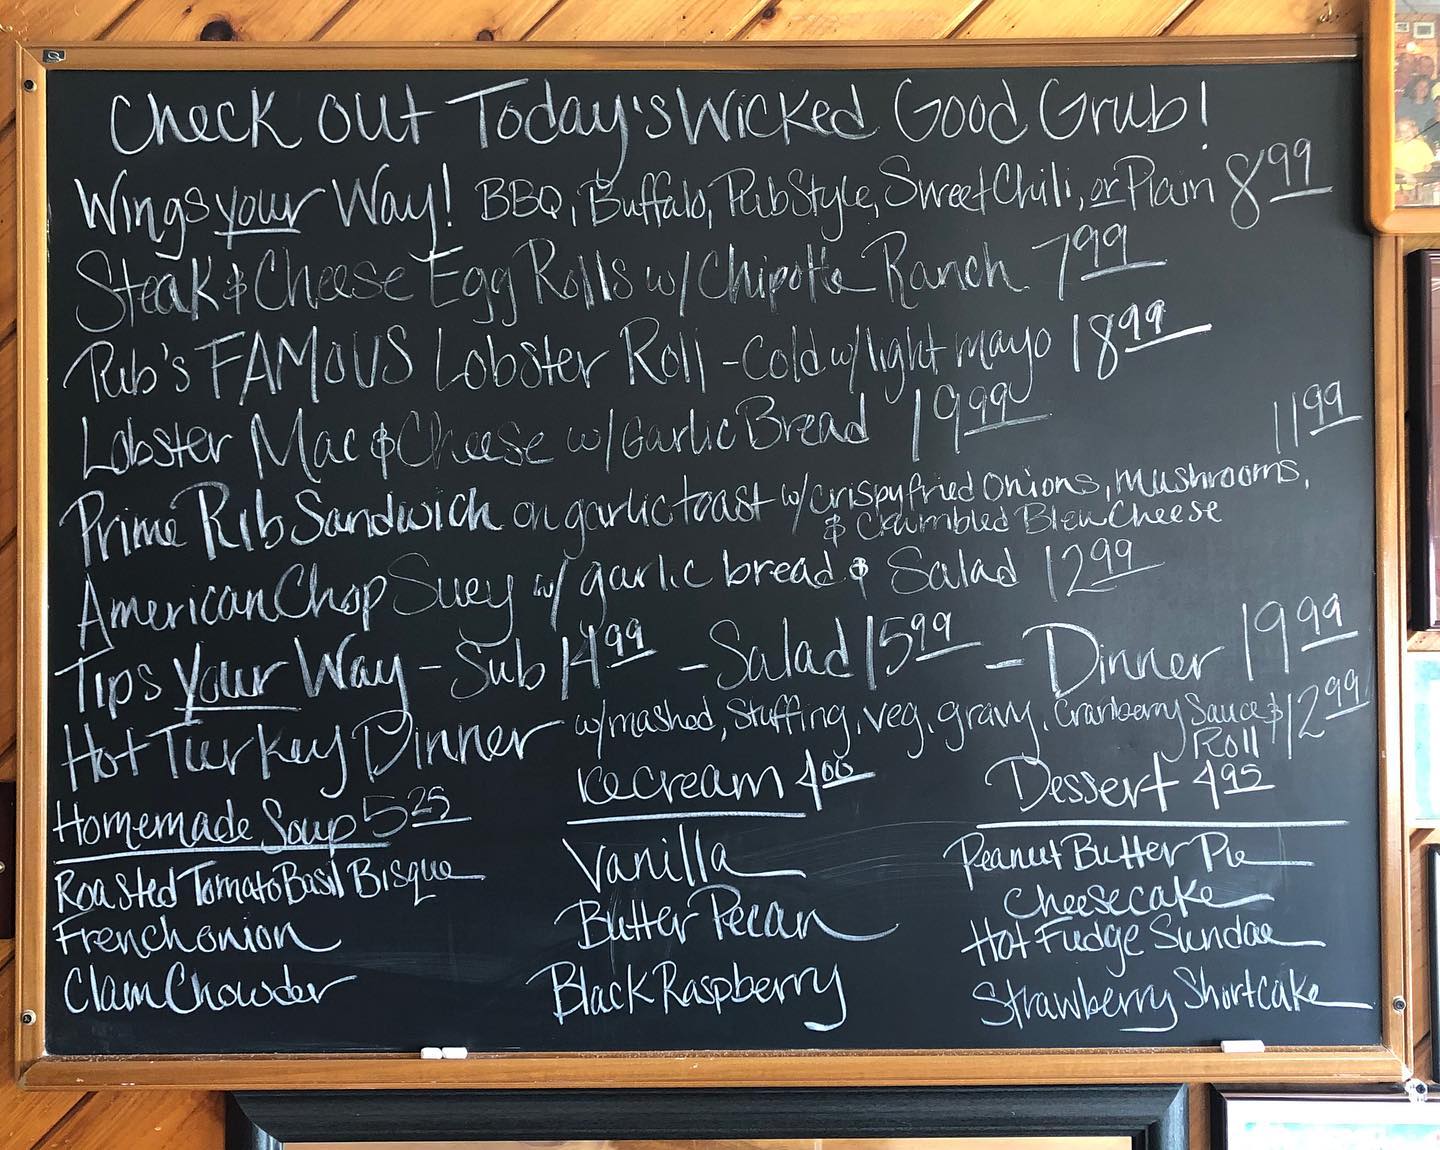 Check out Today's Wicked Good Grub!
Wings your Way! BBQ, Buffalo, Pub Style, Sweet Chili, or Plain 8 99
Steak & Cheese Egg Rolls w/ Chipotle Ranch 7 99
Pub's FAMOUS Lobster Roll - Cold w/ light mayo 18 99
Lobster Mac & Cheese w/ Garlic Bread 19 99
11 99
Prime Rib Sandwich on garlic toast w/ crispy fried onions, mushrooms,
& Crumbled Bleu Cheese
American Chop Suey w/ garlic bread & Salad 12 99
Tips your Way - Sub 14 99 - Salad 15 99 - Dinner 19 99
Hot Turkey Dinner w/ mashed, Stuffing, veg, gravy, Cranberry Sauce & 12 99
Roll
Homemade Soup 5 25
Roasted Tomato Basil Bisque
French onion
Clam Chowder
ice cream 4 00
Vanilla
Butter Pecan
Black Raspberry
Dessert 4 95
Peanut Butter Pie
Cheesecake
Hot Fudge Sundae
Strawberry Shortcake